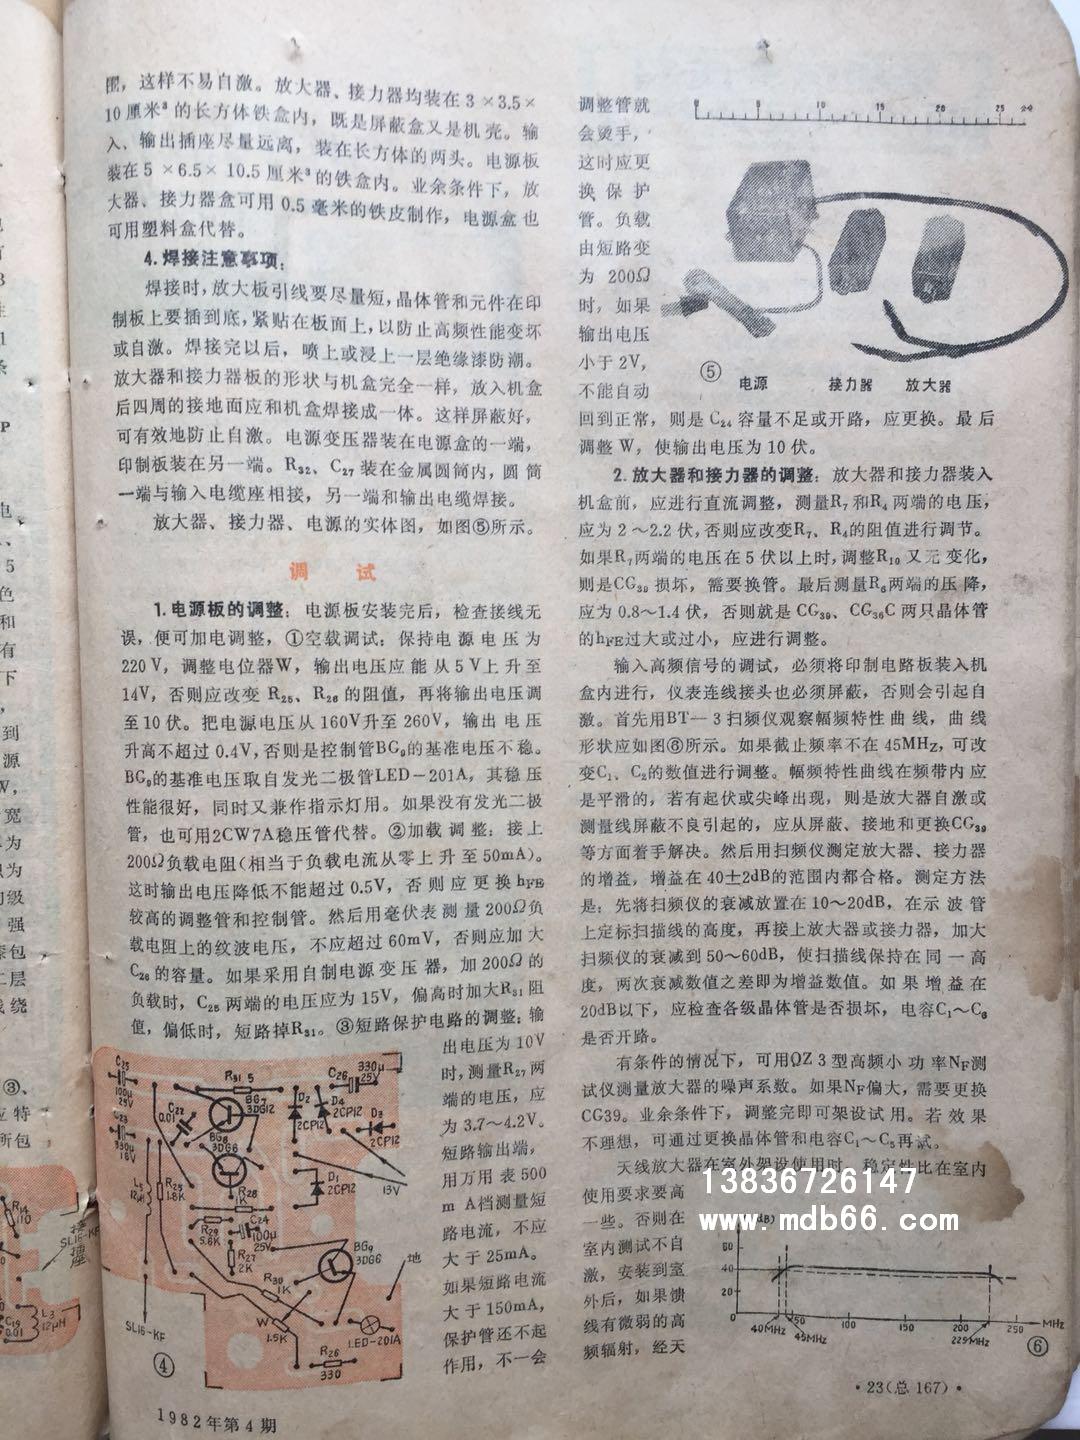 围，这样不易自激。放大器、接力器均装在3×3.5×
10厘米³的长方体铁盒内，既是屏蔽盒又是机壳。输
入、输出插座尽量远离，装在长方体的两头。电源板
装在5×6.5×10.5厘米³的铁盒内。业余条件下，放
大器、接力器盒可用0.5毫米的铁皮制作，电源盒也
可用塑料盒代替。
4.焊接注意事项：
焊接时，放大板引线要尽量短，晶体管和元件在印
制板上要插到底，紧贴在板面上，以防止高频性能变坏
或自激。焊接完以后，喷上或浸上一层绝缘漆防潮。
放大器和接力器板的形状与机盒完全一样，放入机盒
后四周的接地面应和机盒焊接成一体。这样屏蔽好，
可有效地防止自激。电源变压器装在电源盒的一端，
印制板装在另一端。R₃₂、C₂₇装在金属圆筒内，圆筒
一端与输入电缆座相接，另一端和输出电缆焊接。
放大器、接力器、电源的实体图，如图⑤所示。
调 试
1.电源板的调整：电源板安装完后，检查接线无
误，便可加电调整，①空载调试：保持电源电压为
220V，调整电位器W，输出电压应能从5V上升至
14V，否则应改变R₂₅、R₂₆的阻值，再将输出电压调
至10伏。把电源电压从160V升至260V，输出电压
升高不超过0.4V，否则是控制管BG₉的基准电压不稳。
BG₉的基准电压取自发光二极管LED-201A，其稳压
性能很好，同时又兼作指示灯用。如果没有发光二极
管，也可用2CW7A稳压管代替。②加载调整：接上
200Ω负载电阻(相当于负载电流从零上升至50mA)。
这时输出电压降低不能超过0.5V，否则应更换hFE
较高的调整管和控制管。然后用毫伏表测量200Ω负
载电阻上的纹波电压，不应超过60mV，否则应加大
C₂₆的容量。如果采用自制电源变压器，加200Ω的
负载时，C₂₅两端的电压应为15V，偏高时加大R₃₁阻
值，偏低时，短路掉R₃₁。③短路保护电路的调整：输
出电压为10V
时，测量R₂₇两
端的电压，应
为3.7～4.2V。
短路输出端，
用万用表500
mA档测量短
路电流，不应
大于25mA。
如果短路电流
大于150mA，
保护管还不起
作用，不一会
C25
100μ
25V
C23
330μ
16V
C22
0.01
R31 5
BG7
3DG12
BG8
3DG6
D2
2CP12
D4
2CP12
C26
330μ
25V
D3
2CP12
D1
2CP12
13V
L5
12μH
R25
1.8K
R28
1K
R29
5.6K
C24
100μ
25V
R27
2K
BG9
3DG6
地
R30
1K
W
1.5K
LED-201A
R26
330
SL16-KF
④
1982年第4期
调整管就
会烫手，
这时应更
换保护
管。负载
由短路变
为200Ω
时，如果
输出电压
小于2V，
不能自动
0 5 10 15 20 25
⑤ 电源 接力器 放大器
回到正常，则是C₂₄容量不足或开路，应更换。最后
调整W，使输出电压为10伏。
2.放大器和接力器的调整：放大器和接力器装入
机盒前，应进行直流调整，测量R₇和R₄两端的电压，
应为2～2.2伏，否则应改变R₇、R₄的阻值进行调节。
如果R₇两端的电压在5伏以上时，调整R₁₀又无变化，
则是CG₃₉损坏，需要换管。最后测量R₆两端的压降，
应为0.8～1.4伏，否则就是CG₃₉、CG₃₆C两只晶体管
的hFE过大或过小，应进行调整。
输入高频信号的调试，必须将印制电路板装入机
盒内进行，仪表连线接头也必须屏蔽，否则会引起自
激。首先用BT—3扫频仪观察幅频特性曲线，曲线
形状应如图⑥所示。如果截止频率不在45MHz，可改
变C₁、C₂的数值进行调整。幅频特性曲线在频带内应
是平滑的，若有起伏或尖峰出现，则是放大器自激或
测量线屏蔽不良引起的，应从屏蔽、接地和更换CG₃₉
等方面着手解决。然后用扫频仪测定放大器、接力器
的增益，增益在40±2dB的范围内都合格。测定方法
是：先将扫频仪的衰减放置在10～20dB，在示波管
上定标扫描线的高度，再接上放大器或接力器，加大
扫频仪的衰减到50～60dB，使扫描线保持在同一高
度，两次衰减数值之差即为增益数值。如果增益在
20dB以下，应检查各级晶体管是否损坏，电容C₁～C₆
是否开路。
有条件的情况下，可用QZ3型高频小功率NF测
试仪测量放大器的噪声系数。如果NF偏大，需要更换
CG39。业余条件下，调整完即可架设试用。若效果
不理想，可通过更换晶体管和电容C₁～C₅再试。
天线放大器在室外架设使用时，稳定性比在室内
使用要求要高
一些。否则在
室内测试不自
激，安装到室
外后，如果馈
线有微弱的高
频辐射，经天
13836726147
www.mdb66.com
(dB)
60
40
20
0 50 100 150 200 250 MHz
40MHz 45MHz 225MHz
⑥
·23(总167)·
R14
110
SL16-KF
插座
C19
0.01
L3
12μH